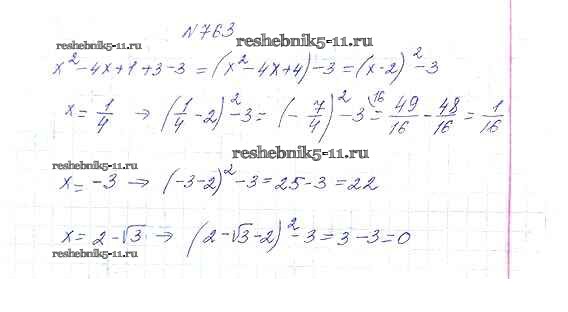 №763
reshebnik5-11.ru reshebnik5-11.ru
x² - 4x + 1 + 3 - 3 = (x² - 4x + 4) - 3 = (x - 2)² - 3
x = 1/4 → (1/4 - 2)² - 3 = (- 7/4)² - 3\16 = 49/16 - 48/16 = 1/16
reshebnik5-11.ru
reshebnik5-11.ru
x = -3 → (-3 - 2)² - 3 = 25 - 3 = 22
x = 2 - √3 → (2 - √3 - 2)² - 3 = 3 - 3 = 0
reshebnik5-11.ru